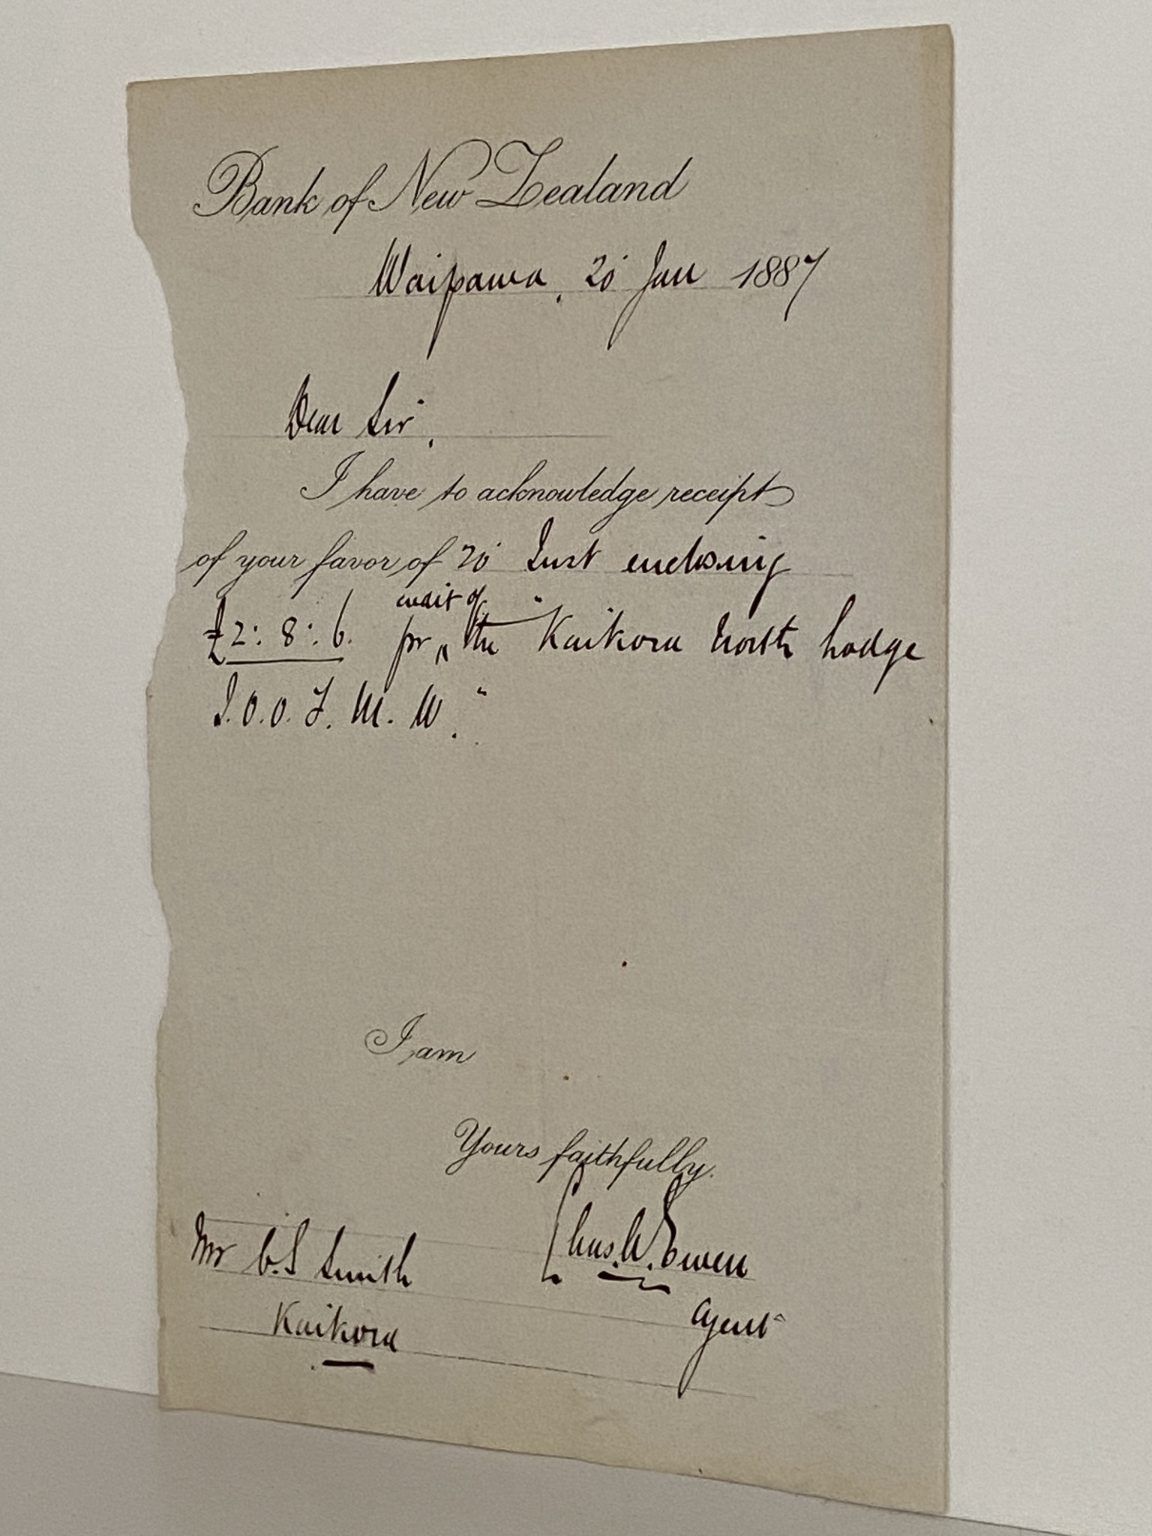 Bank of New Zealand
Waipawa, 20 Jan 1887
Dear Sir,
I have to acknowledge receipt
of your favor of 20 Inst enclosing
credit of
£2:8:6. for ^ the "Kaikora North Lodge
I.O.O.F.M.W."
I am
Yours faithfully.
Chas. W. Owen
Mr C.S Smith
Agent
Kaikora